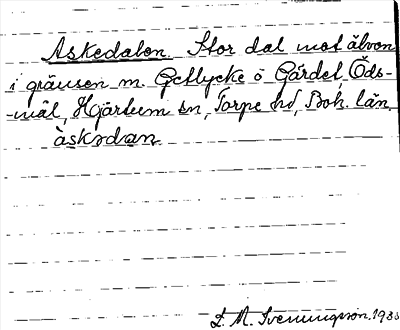 Askedalen. Stor dal mot älven
i gränsen m. Getlycke o Gärdet, Öds-
-mål, Hjärtum sn, Torpe hd, Boh. län.
àskədan
S. M. Svenungson. 1933